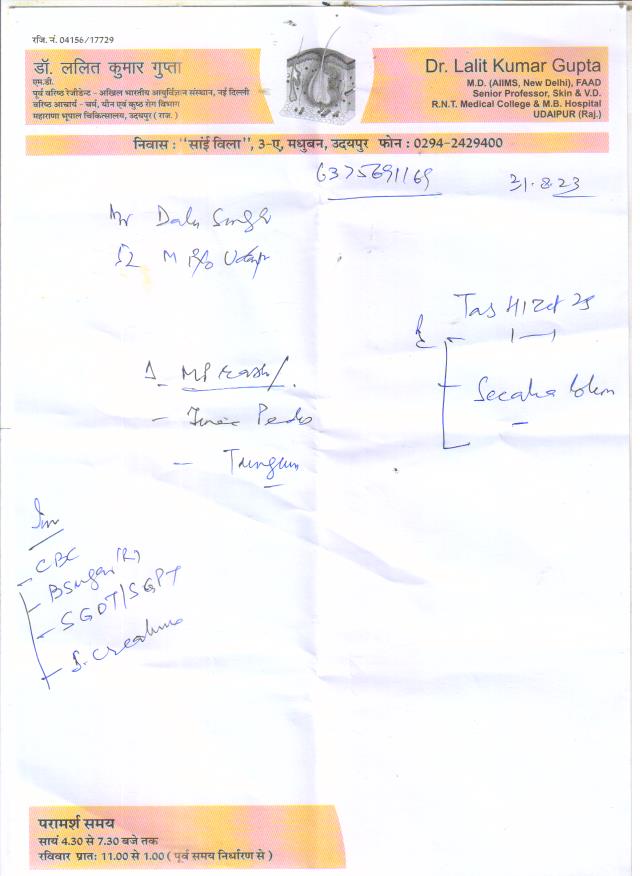 रजि. नं. 04156/17729
डॉ. ललित कुमार गुप्ता
एम.डी.
पूर्व वरिष्ठ रेजीडेन्ट - अखिल भारतीय आयुर्विज्ञान संस्थान, नई दिल्ली
वरिष्ठ आचार्य - चर्म, यौन एवं कुष्ठ रोग विभाग
महाराणा भूपाल चिकित्सालय, उदयपुर ( राज. )
Dr. Lalit Kumar Gupta
M.D. (AIIMS, New Delhi), FAAD
Senior Professor, Skin & V.D.
R.N.T. Medical College & M.B. Hospital
UDAIPUR (Raj.)
निवास : "सांई विला", 3-ए, मधुबन, उदयपुर फोन : 0294-2429400
6375691169
31.8.23
Mr Singh
52 M R/o
MP rash
CBC
B Sugar (R)
SGOT/SGPT
S. Creatinine
परामर्श समय
सायं 4.30 से 7.30 बजे तक
रविवार प्रातः 11.00 से 1.00 ( पूर्व समय निर्धारण से )